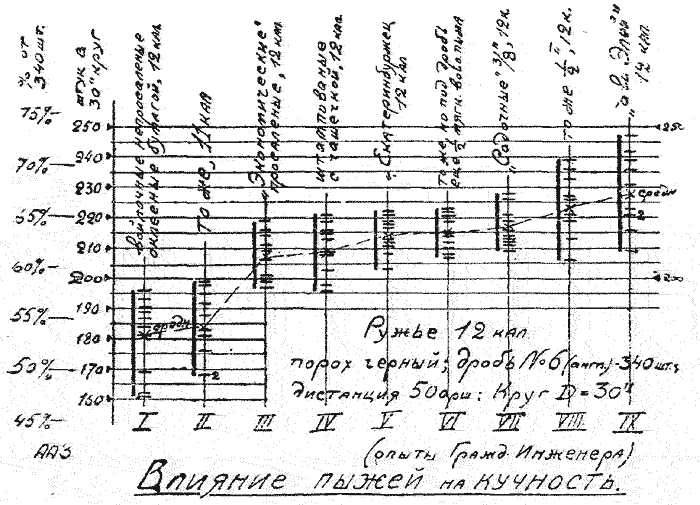 % от 340 шт.
штук в 30" круг
войлочные непросаленые оклееные бумагой, 12 кал.
то же, 11 кал
"Экономические" просаленые, 12 кал.
штампованые с чашечкой, 12 кал.
"Екатеринбуржец" 12 кал
тоже, но под дробь еще 1/2 мягк. войл. пыжа
"Садочные" 3/8", 12 к.
то же 1/2", 12 к.
12 кал.
75%
70%
65%
60%
55%
50%
45%
250
240
230
220
210
200
190
180
170
160
250
200
средн
2
средн
2
Ружье 12 кал
порох черный; дробь № 6 (англ) - 340 шт.;
дистанция 50 арш: Круг D = 30"
I II III IV V VI VII VIII IX
ААЗ
(опыты Гражд. Инженера)
Влияние пыжей на кучность.